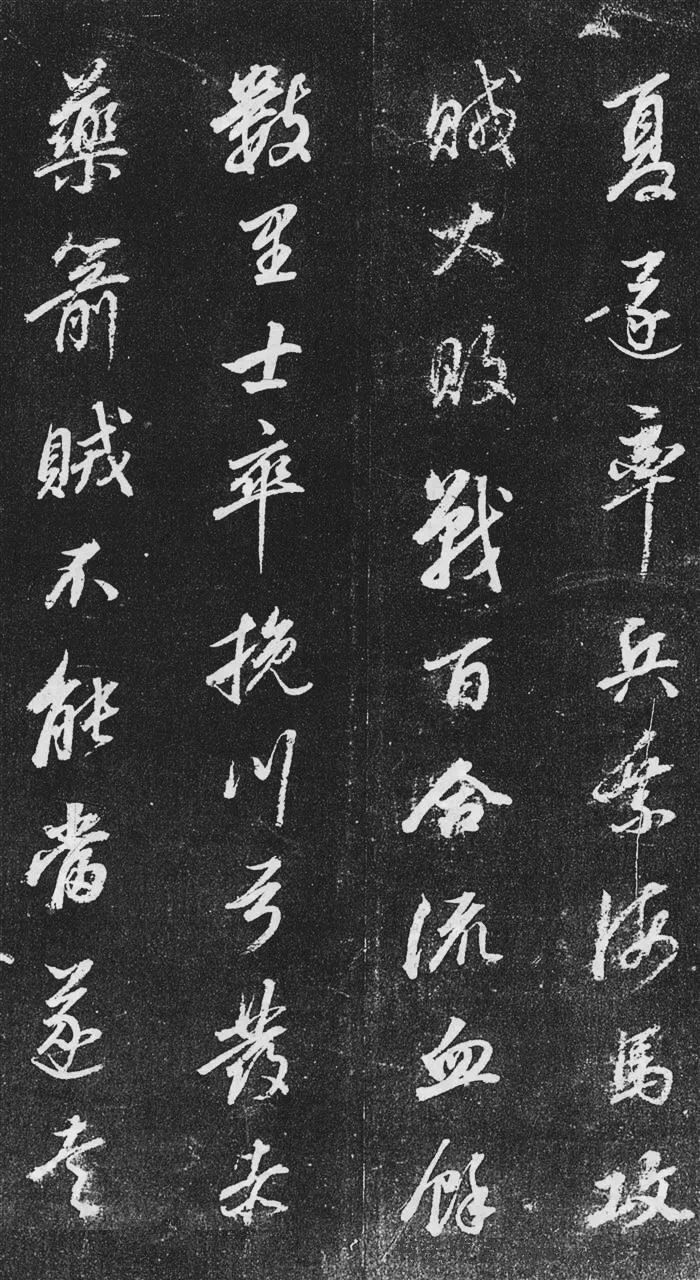 夏遂率兵乘海馬攻
賊大敗戰百合流血餘
數里士卒挽川弓發赤
藥箭賊不能當遂走